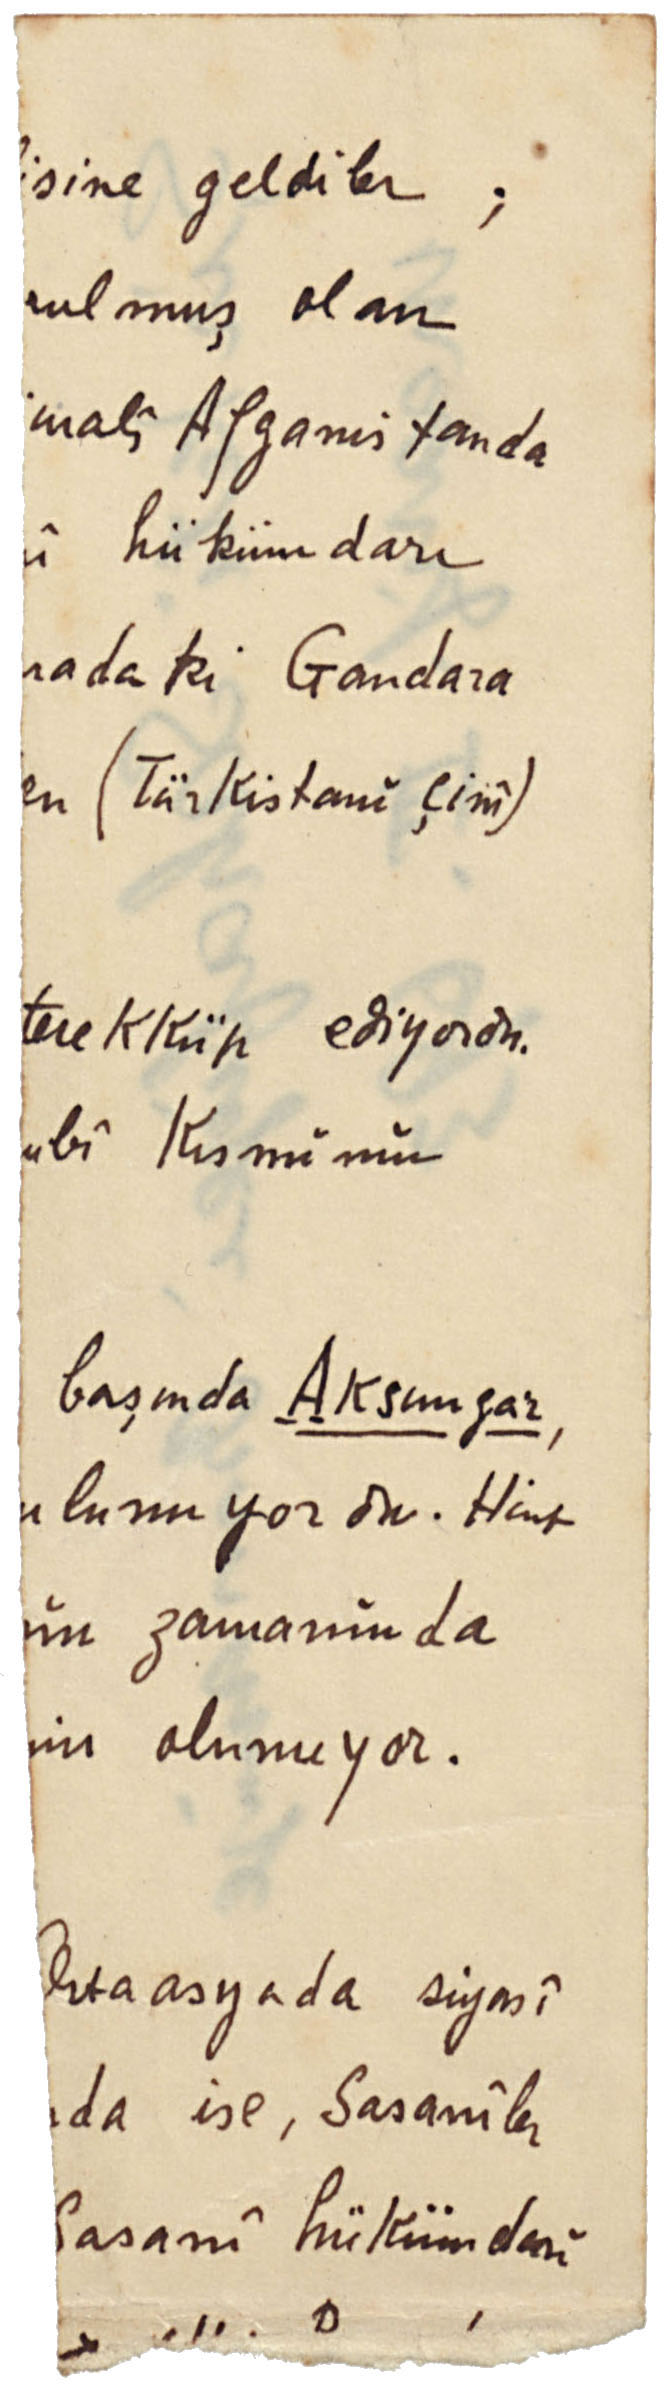 isine geldiler ;
rulmuş olan
imalî Afganistanda
î hükümdarı
radaki Gandara
en (Türkistanı Çinî)
terekküp ediyordu.
ubî Kısmının
başında Aksungar,
ulunuyordu. Hint
nın zamanında
olunuyor.
Ortaasyada siyasî
da ise, Sasanîler
Sasanî hükümdarı